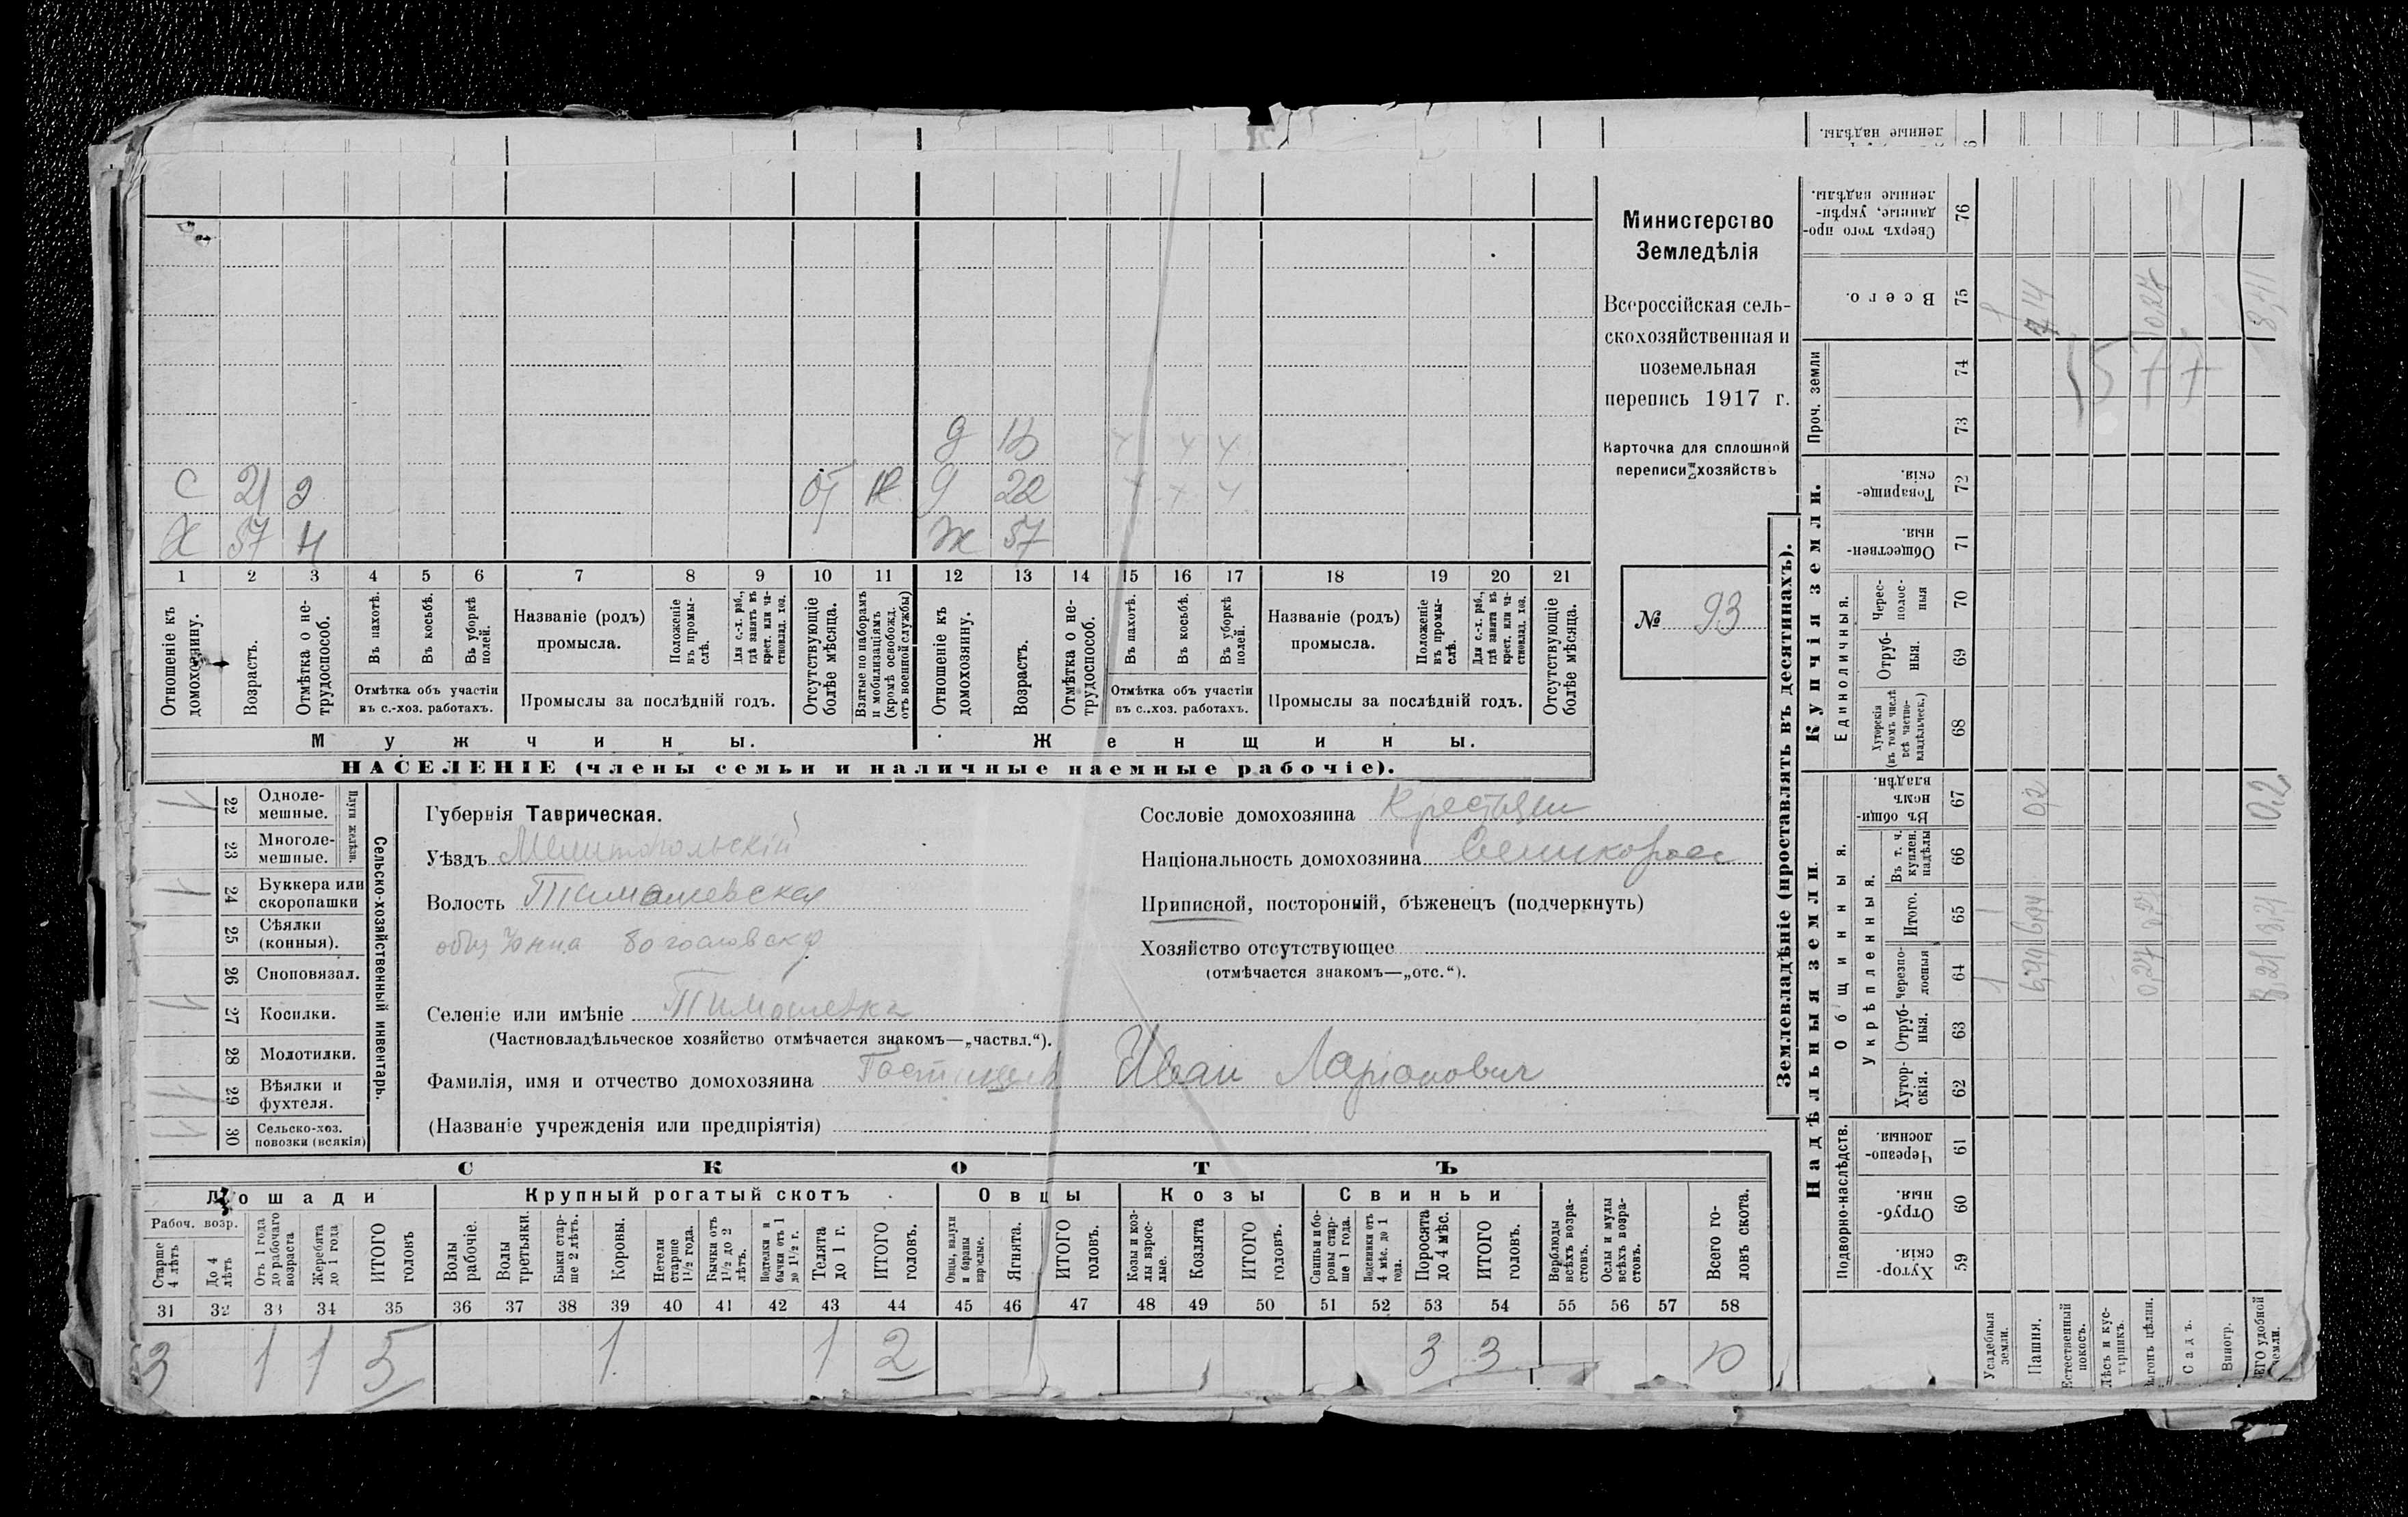 ленные надѣлы.
С 21 Э от д 22
Х 57 Н Ж 57
1 2 3 4 5 6 7 8 9 10 11 12 13 14 15 16 17 18 19 20 21
Отношеніе къ домохозяину.
Возрастъ.
Отмѣтка о нетрудоспособ.
Въ пахотѣ.
Въ косьбѣ.
Въ уборкѣ полей.
Отмѣтка объ участіи
въ с.-хоз. работахъ.
Названіе (родъ)
промысла.
Положеніе въ промыслѣ.
Для с.-х. раб., гдѣ занятъ въ крест. или частновлад. хоз.
Промыслы за послѣдній годъ.
Отсутствующіе болѣе мѣсяца.
Взятые по наборамъ и мобилизаціямъ (кромѣ освобожд. отъ военной службы)
Отношеніе къ домохозяину.
Возрастъ.
Отмѣтка о нетрудоспособ.
Въ пахотѣ.
Въ косьбѣ.
Въ уборкѣ полей.
Отмѣтка объ участіи
въ с.-хоз. работахъ.
Названіе (родъ)
промысла.
Положеніе въ промыслѣ.
Для с.-х. раб., гдѣ занята въ крест. или частновлад. хоз.
Промыслы за послѣдній годъ.
Отсутствующіе болѣе мѣсяца.
Мужчины. Женщины.
НАСЕЛЕНІЕ (члены семьи и наличные наемные рабочіе).
Министерство
Земледѣлія
Всероссійская сель-
скохозяйственная и
поземельная
перепись 1917 г.
Карточка для сплошной
переписи хозяйствъ
№ 93
22 Одноле-
мешные.
23 Многоле-
мешные.
Плуги желѣзн.
24 Буккера или
скоропашки
25 Сѣялки
(конныя).
26 Сноповязал.
27 Косилки.
28 Молотилки.
29 Вѣялки и
фухтеля.
30 Сельско-хоз.
повозки (всякія)
Сельско-хозяйственный инвентарь.
Губернія Таврическая.
Уѣздъ Мелитопольскій
Волость Тимашевская
Селеніе или имѣніе Тимошевка
(Частновладѣльческое хозяйство отмѣчается знакомъ—„частвл.“).
Фамилія, имя и отчество домохозяина Иван Ларионович
(Названіе учрежденія или предпріятія)
Сословіе домохозяина Крестьяни
Національность домохозяина Великоросс
Приписной, посторонній, бѣженецъ (подчеркнуть)
Хозяйство отсутствующее
(отмѣчается знакомъ—„отс.“).
СКОТЪ
Лошади
Крупный рогатый скотъ
Овцы
Козы
Свиньи
Рабоч. возр.
Старше 4 лѣтъ
До 4 лѣтъ
Отъ 1 года до рабочаго возраста
Жеребята до 1 года
ИТОГО головъ
Волы рабочіе.
Волы третьяки.
Быки старше 2 лѣтъ.
Коровы.
Нетели старше 1½ года.
Бычки отъ 1½ до 2 лѣтъ.
Подтелки и бычки отъ 1 до 1½ г.
Телята до 1 г.
ИТОГО головъ.
Овцы, валухи и бараны взрослые.
Ягнята.
ИТОГО головъ.
Козы и козлы взрослые.
Козлята
ИТОГО головъ.
Свиньи и боровы старше 1 года.
Подсвинки отъ 4 мѣс. до 1 года.
Поросята до 4 мѣс.
ИТОГО головъ.
Верблюды всѣхъ возрастовъ.
Ослы и мулы всѣхъ возрастовъ.
Всего головъ скота.
31 32 33 34 35 36 37 38 39 40 41 42 43 44 45 46 47 48 49 50 51 52 53 54 55 56 57 58
3 1 1 5 1 1 2 3 3 10
Землевладѣніе (проставлять въ десятинахъ).
Купчія земли.
Надѣльныя земли
Сверхъ того проданные, укрѣпленные надѣлы. 76
Всего. 75
Проч. земли
74
73
Товарищескія. 72
Общественныя. 71
Единоличныя.
Черезполосныя 70
Отрубныя. 69
Хуторскія (въ томъ числѣ всѣ частновладѣльческ.) 68
Общинныя.
Въ общинномъ владѣн. 67
Укрѣпленныя.
Въ т. ч. куплен. надѣлы 66
Итого. 65
Черезполосныя 64
Отрубныя. 63
Хуторскія. 62
Подворно-наслѣдств.
Черезполосныя. 61
Отрубныя. 60
Хуторскія. 59
Усадебныя земли.
Пашня.
Естественный покосъ.
Лѣсъ и кустарникъ.
Выгонъ цѣлин.
Садъ.
Виногр.
ЕГО удобной земли.